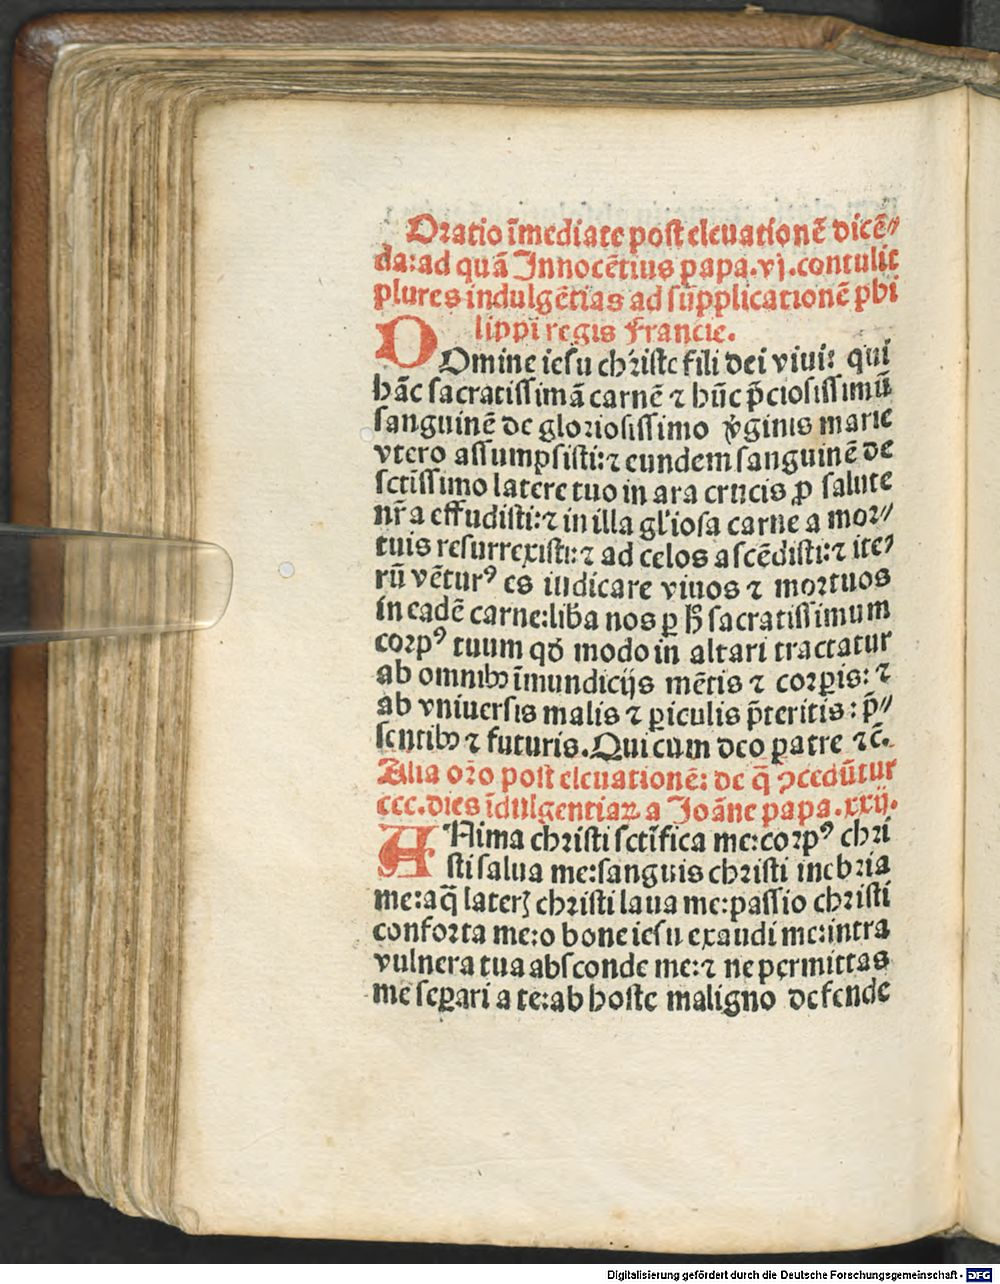 Oratio īmediate post eleuationē dicē⸗
da: ad quā Innocētius papa.vj. contulit
plures indulgētias ad supplicationē phi
lippi regis Francie.
DOmine iesu christe fili dei viui: qui
hāc sacratissimā carnē ⁊ hūc p̄ciosissimū
sanguinē de gloriosissimo v̓ginis marie
vtero assumpsisti: ⁊ eundem sanguinē de
sctīssimo latere tuo in ara crucis ꝓ salute
nr̄a effudisti: ⁊ in illa gl'iosa carne a mor⸗
tuis resurrexisti: ⁊ ad celos ascēdisti: ⁊ ite⸗
rū vētur⁹ es iudicare viuos ⁊ mortuos
in eadē carne: lib̄a nos ꝑ h̄ sacratissimum
corp⁹ tuum qđ modo in altari tractatur
ab omnibꝫ īmundicijs mētis ⁊ corꝑis: ⁊
ab vniuersis malis ⁊ ꝑiculis p̄teritis: p̄⸗
sentibꝫ ⁊ futuris. Qui cum deo patre ⁊c̄.
Alia oꝛo post eleuationē: de q̄ ꝯcedūtur
ccc. dies īdulgentiaꝝ a Joāne papa.xxij.
ANima christi sctīfica me: corp⁹ chri
sti salua me: sanguis christi inebria
me: aq̄ laterꝫ christi laua me: passio christi
conforta me: o bone iesu exaudi me: intra
vulnera tua absconde me: ⁊ ne permittas
me seꝑari a te: ab hoste maligno defende
Digitalisierung gefördert durch die Deutsche Forschungsgemeinschaft - DFG